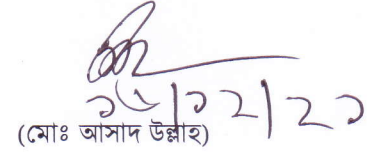 ১৫/১২/২১
(মোঃ আসাদ উল্লাহ)